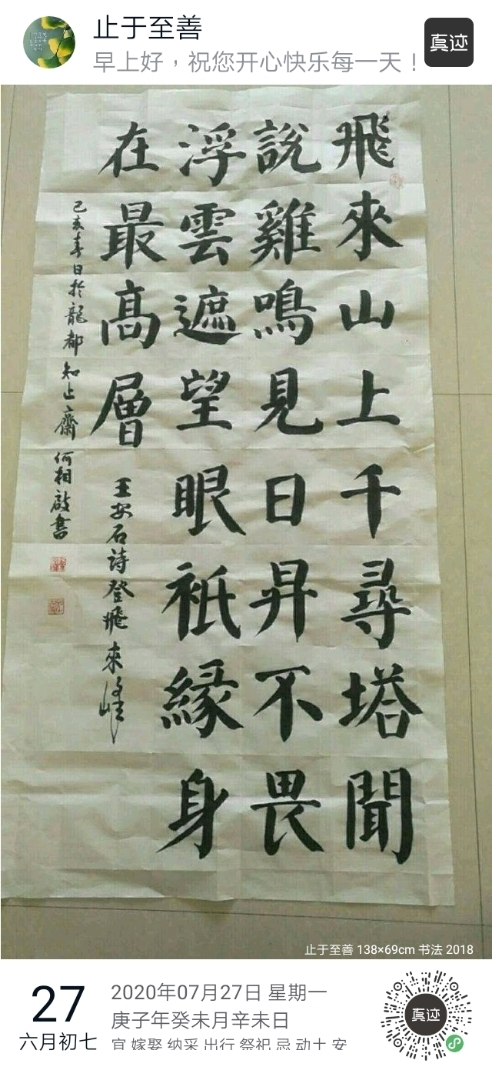 止于至善
早上好，祝您开心快乐每一天！
真迹
飛來山上千尋塔聞
說雞鳴見日昇不畏
浮雲遮望眼祇緣身
在最高層
王安石詩登飛來峰
己亥春日於龍都知止齋何相啟書
止于至善 138×69cm 书法 2018
27
六月初七
2020年07月27日 星期一
庚子年癸未月辛未日
宜 嫁娶 纳采 出行 祭祀 忌 动土 安
真迹